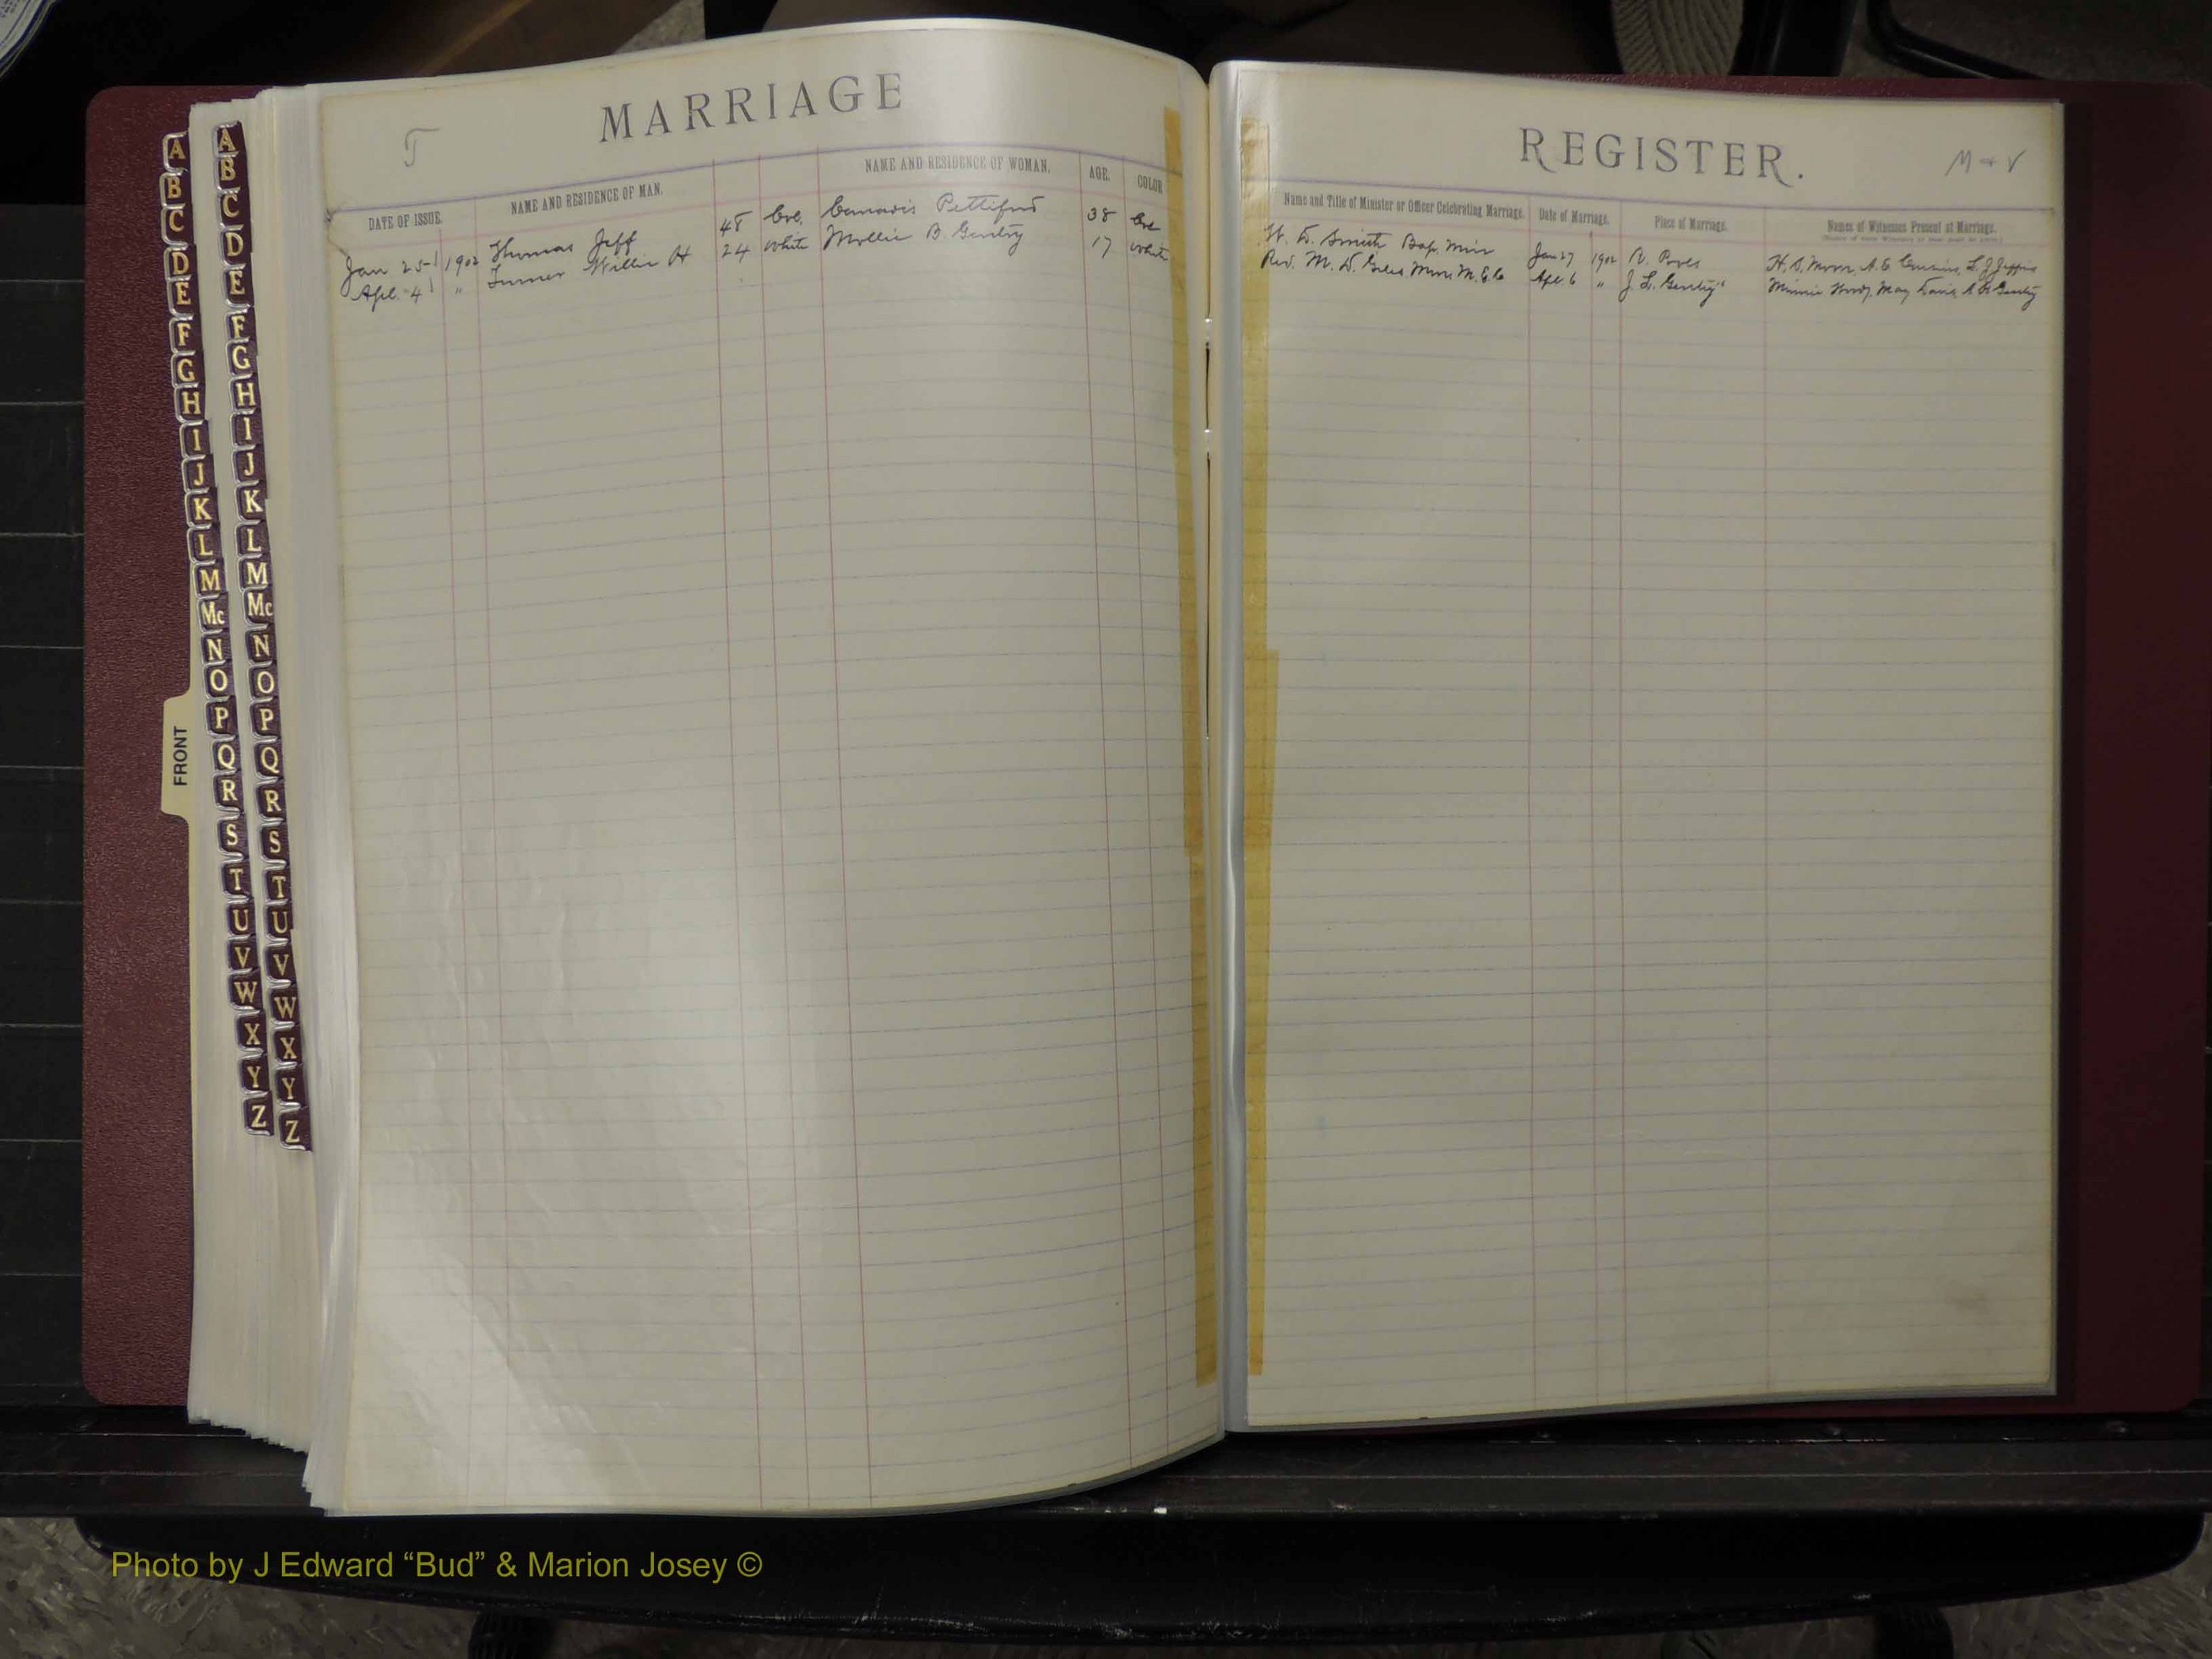 MARRIAGE
T
DATE OF ISSUE. NAME AND RESIDENCE OF MAN. NAME AND RESIDENCE OF WOMAN. AGE. COLOR
Jan 25 1902 Thomas Jeff 48 Col. Pettiford 38 Col
Apl. 4 " Turner Willie H 24 White Mollie B. Gentry 17 White
REGISTER.
M & V
Name and Title of Minister or Officer Celebrating Marriage. Date of Marriage. Place of Marriage. Names of Witnesses Present at Marriage.
W. D. Smith Bap. Min Jan 27 1902
Rev. M. D. Giles Min. M. E. Ch Apl 6 " J. L. Gentry's Minnie Moody, May Davis, Gentry
A
B
C
D
E
F
G
H
I
J
K
L
M
Mc
N
O
P
Q
R
S
T
U
V
W
X
Y
Z
A
B
C
D
E
F
G
H
I
J
K
L
M
Mc
N
O
P
Q
R
S
T
U
V
W
X
Y
Z
FRONT
Photo by J Edward “Bud” & Marion Josey ©